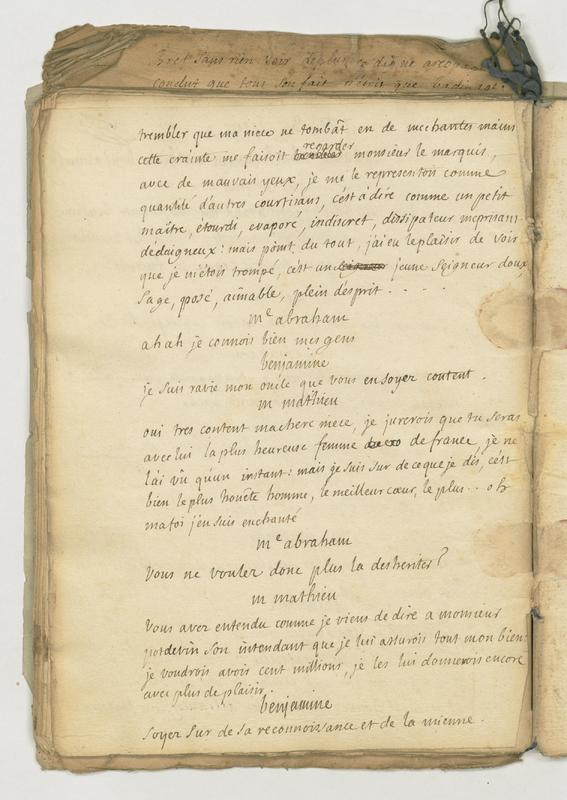 Et sans rien voir
conclut que tous son fait n'etoit que badinage.
trembler que ma niece ne tombât en de mechantes mains
cette crainte me faisoit regarder monsieur le marquis,
avec de mauvais yeux, je me le representois comme
quantité d'autres courtisans, c'est à dire comme un petit
maître, étourdi, evaporé, indiscret, dissipateur meprisant
dédaigneux: mais point du tout, j'ai eu le plaisir de voir
que je m'etois trompé, c'est un jeune Seigneur doux,
sage, posé, aimable, plein d'esprit - - - -
me abraham
ahah je connois bien mes gens
benjamine
je suis ravie mon oncle que vous en soyez content.
m mathieu
oui tres content ma chere niece, je jurerois que tu seras
avec lui la plus heureuse femme de france, je ne
l'ai vû qu'un instant: mais je suis sur de ce que je dis, c'est
bien le plus honête homme, le meilleur cœur, le plus.. oh
ma foi j'en suis enchanté
me abraham
Vous ne voulez donc plus la desheriter?
m mathieu
Vous avez entendu comme je viens de dire a monsieur
potdevin son intendant que je lui assurois tout mon bien:
je voudrois avoir cent millions, je les lui donnerois encore
avec plus de plaisir.
benjamine
soyez sur de sa reconnoissance et de la mienne.